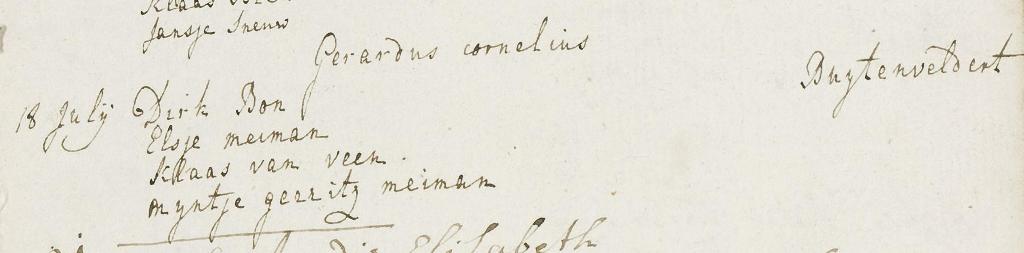 Klaas
Jansje Sneuw
Gerardus cornelius
Buytenveldert
18 July Dirk Bon
Elsje meiman
Klaas van veen
myntje gerritz meiman
Elisabeth